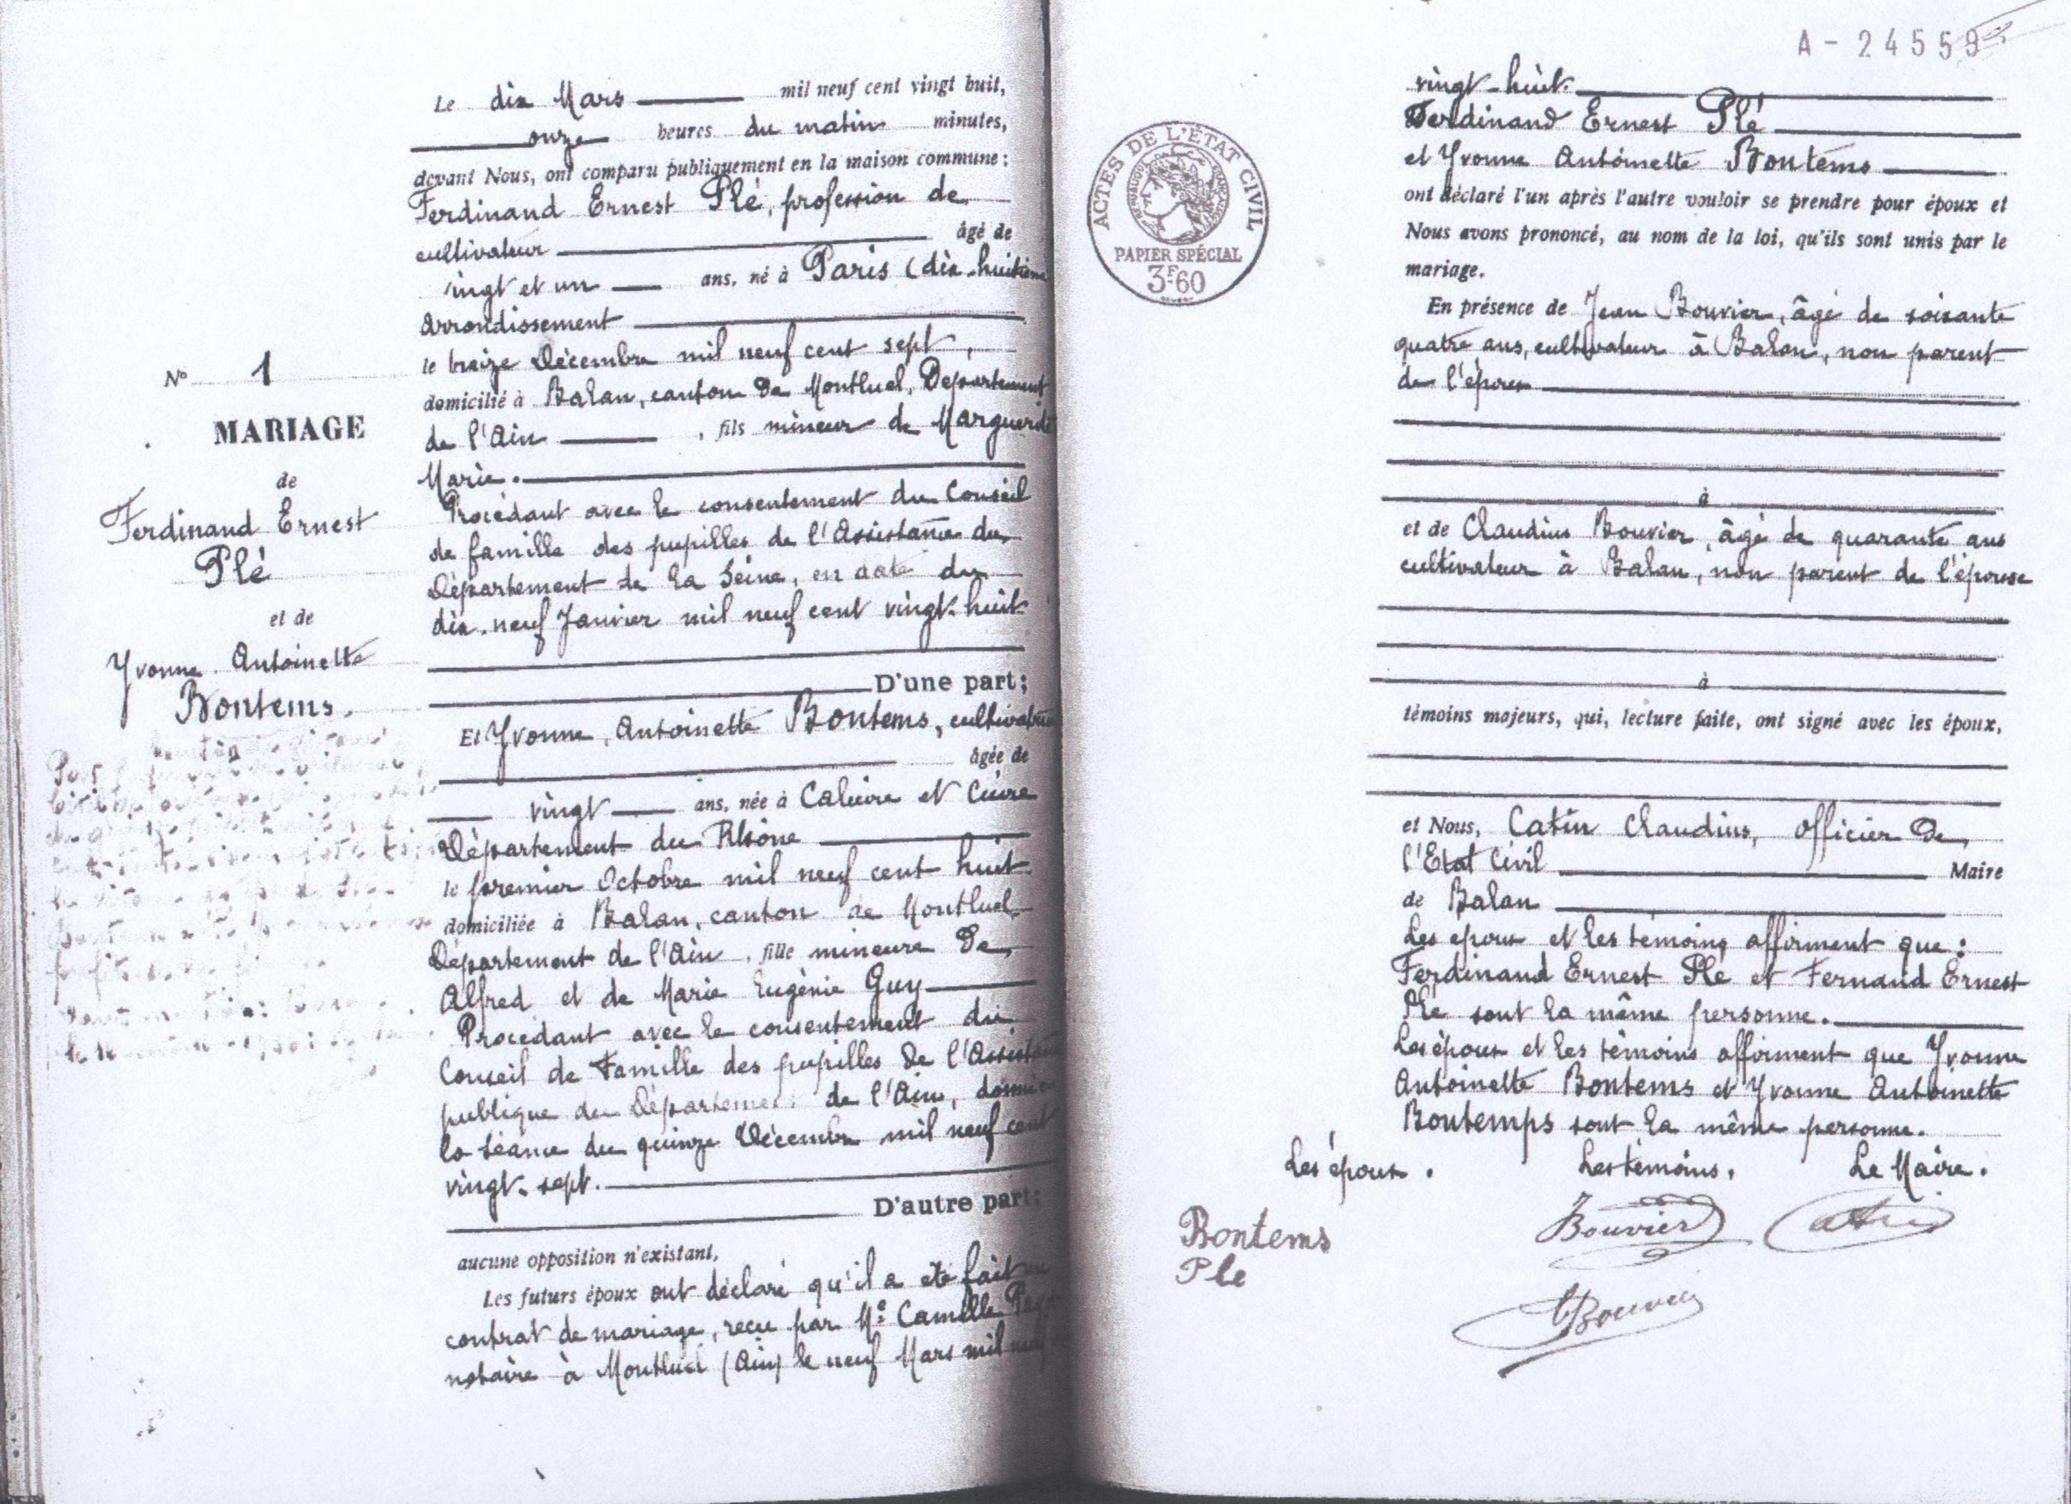 N° 1
MARIAGE
de
Ferdinand Ernest
Plé
et de
Yvonne Antoinette
Bontems.
Le dix Mars mil neuf cent vingt huit,
onze heures du matin minutes,
devant Nous, ont comparu publiquement en la maison commune :
Ferdinand Ernest Plé, profession de
cultivateur âgé de
vingt et un ans, né à Paris (dix-huitième
arrondissement
le treize Décembre mil neuf cent sept,
domicilié à Balan, canton de Montluel, Département
de l'Ain, fils mineur de Marguerite
Marie.
Procédant avec le consentement du Conseil
de famille des pupilles de l'Assistance du
Département de la Seine, en date du
dix-neuf Janvier mil neuf cent vingt-huit
D'une part;
Et Yvonne, Antoinette Bontems, cultivatrice
âgée de
vingt ans, née à Caluire et Cuire
Département du Rhône
le premier Octobre mil neuf cent huit
domiciliée à Balan, canton de Montluel
Département de l'Ain, fille mineure de
Alfred et de Marie Eugénie Guy
Procédant avec le consentement du
Conseil de Famille des pupilles de l'Assistance
publique du Département de l'Ain, donné en
la séance du quinze Décembre mil neuf cent
vingt-sept.
D'autre part;
aucune opposition n'existant,
Les futurs époux ont déclaré qu'il a été fait un
contrat de mariage, reçu par Me Camille
notaire à Montluel (Ain) le neuf Mars mil neuf
A - 24559
ACTES DE L'ÉTAT CIVIL
RÉPUBLIQUE FRANÇAISE
PAPIER SPÉCIAL
3F.60
vingt-huit.
Ferdinand Ernest Plé
et Yvonne Antoinette Bontems
ont déclaré l'un après l'autre vouloir se prendre pour époux et
Nous avons prononcé, au nom de la loi, qu'ils sont unis par le
mariage.
En présence de Jean Bouvier, âgé de soixante
quatre ans, cultivateur à Balan, non parent
de l'époux
à
et de Claudius Bouvier, âgé de quarante ans
cultivateur à Balan, non parent de l'épouse
à
témoins majeurs, qui, lecture faite, ont signé avec les époux,
et Nous, Catin Claudius, officier de
l'Etat Civil Maire
de Balan
Les époux et les témoins affirment que :
Ferdinand Ernest Plé et Fernand Ernest
Plé sont la même personne.
Les époux et les témoins affirment que Yvonne
Antoinette Bontems et Yvonne Antoinette
Bontemps sont la même personne.
Les époux. Les témoins. Le Maire.
Bontems Bouvier Catin
Ple
C Bouvier